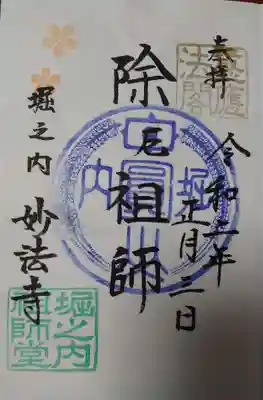 奉拝
令和二年
正月三日
除厄祖師
堀之内 妙法寺
堀内
堀之内
祖師堂